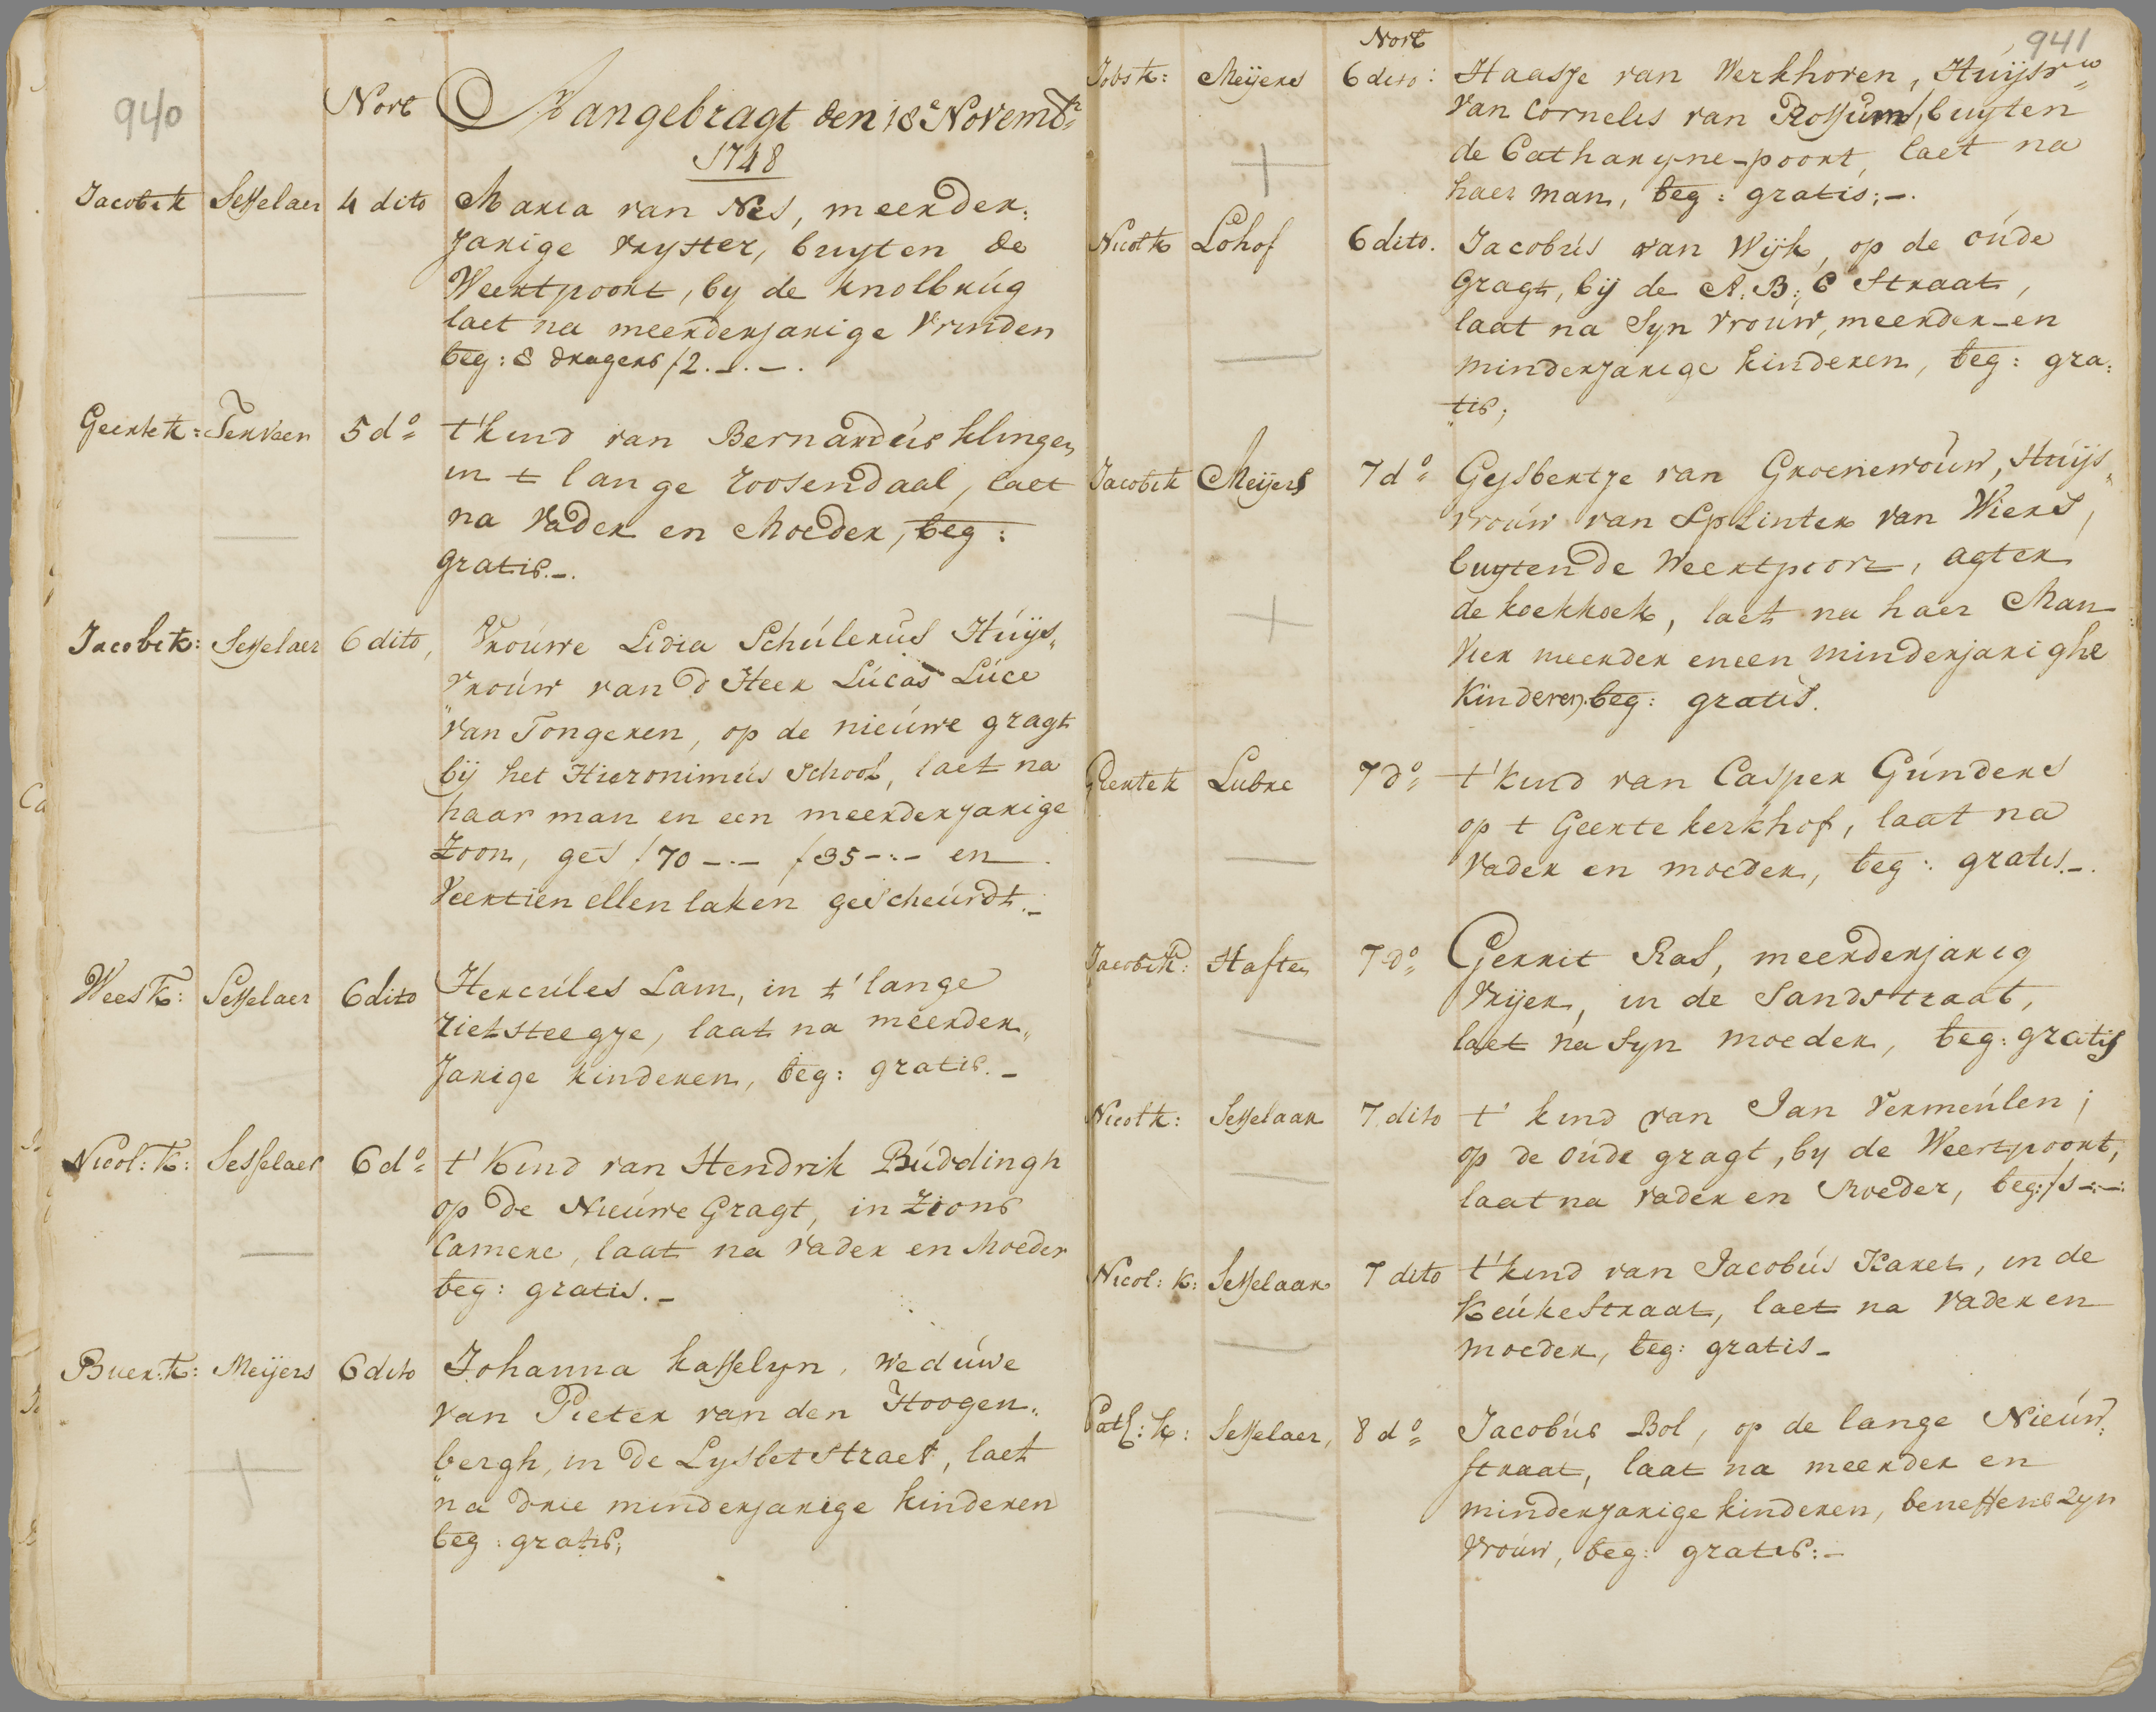 940
Nov̄
Aangebragt den 18e Novemb:r
1748
Jacobi k Sesselaer 4 dito Maria van Nes, meerder:
jarige vryster, buyten de
Weertpoort, by de knolbrúg
laet na meerderjarige vrinden
beg: 8 dragers ƒ2.-.-.
Geerte k: Terveen 5 do t'kind van Bernardús Klingen
in t lange roosendaal, laet
na vader en Moeder, beg:
gratis.-.
Jacobi k: Sesselaer 6 dito, Vroúwe Lidia Schúlerús Húys„
vroúw van d Heer Lúcas Lúce
van Tongeren, op de nieúwe gragt
bij het Hieronimús School, laet na
haar man en een meerderjarige
Zoon, ges ƒ70 -.- ƒ35 -.- en
Veertien ellen laken gescheúrdt.-
Wees k: Sesselaer 6 dito Hercúles Lam, in t' lange
rietsteegje, laat na meerder„
jarige kinderen, beg: gratis.-
Nicol: k: Sesselaer 6 do t' Kind van Hendrik Búddingh
op de Nieúwe Gragt, in Zions
Camere, laat na vader en Moeder
beg: gratis.-
Buer: k: Meijers 6 dito Johanna kasselyn, wedúwe
van Pieter van den Hoogen„
bergh, in de Lysbet straet, laet
na drie minderjarige kinderen
beg: gratis,
941
Nov̄
Jobs k: Meijers 6 dito: Haasje van Werkhoven, Húijsvw
van Cornelis van Rossúm, buyten
de Catharyne-poort, laet na
haer man, beg: gratis:-.
Nicol k Lohof 6 dito. Jacobús van Wijk, op de oúde
Gragt, bij de A:B:C Straat,
laat na syn vroúw, meerder-en
minderjarige kinderen, beg: gra:
tis;
Jacobi k Meijers 7 do Gysbertje van Groenewoúw, Húijs„
vroúw van Splinter van Wiers,
buyten de Weertpoort, agter
de koekkoek, laet na haer Man
vier meerder en een minderjarighe
Kinderen, beg: gratis.
Geerte k Lubre 7 do t' kind van Casper Gúnders
op t Geerte kerkhof, laat na
vader en moeder, beg: gratis.-.
Jacobi k: Haften 7 do Gerrit Ras, meerderjarig
vrijer, in de Sandstraat,
laet na syn moeder, beg: gratis
Nicol k: Sesselaar 7 dito t' kind van Jan Vermeúlen;
op de oúde gragt, by de Weertpoort,
laat na vader en Moeder, beg: ƒ3-:-:
Nicol: k: Sesselaar 7 dito t' kind van Jacobús Karel, in de
Keúkestraat, laet na vader en
moeder, beg: gratis-
Cath: k: Sesselaer, 8 do Jacobús Bol, op de lange Nieúw„
straat, laat na meerder en
minderjarige kinderen, beneffens zyn
vroúw, beg: gratis:-